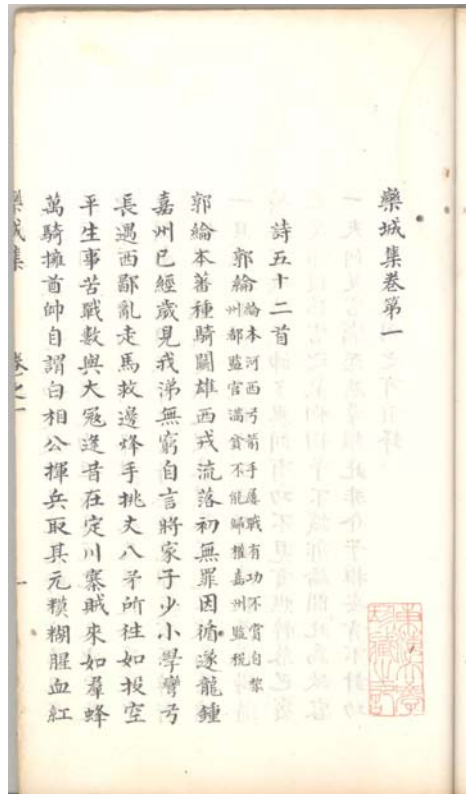 欒城集卷第一
詩五十二首
郭綸
綸本河西弓箭手屢戰有功不賞自黎
州都監官滿貧不能歸權嘉州監稅
郭綸本蕃種騎鬬雄西戎流落初無罪因循遂龍鍾
嘉州已經歲見我涕無窮自言將家子少小學彎弓
長遇西鄙亂走馬救邊烽手挑丈八矛所往如投空
平生事苦戰數與大寇逢昔在定川寨賊來如羣蜂
萬騎擁酋帥自謂白相公揮兵取其元糢糊腥血紅
欒城集
卷之一
一